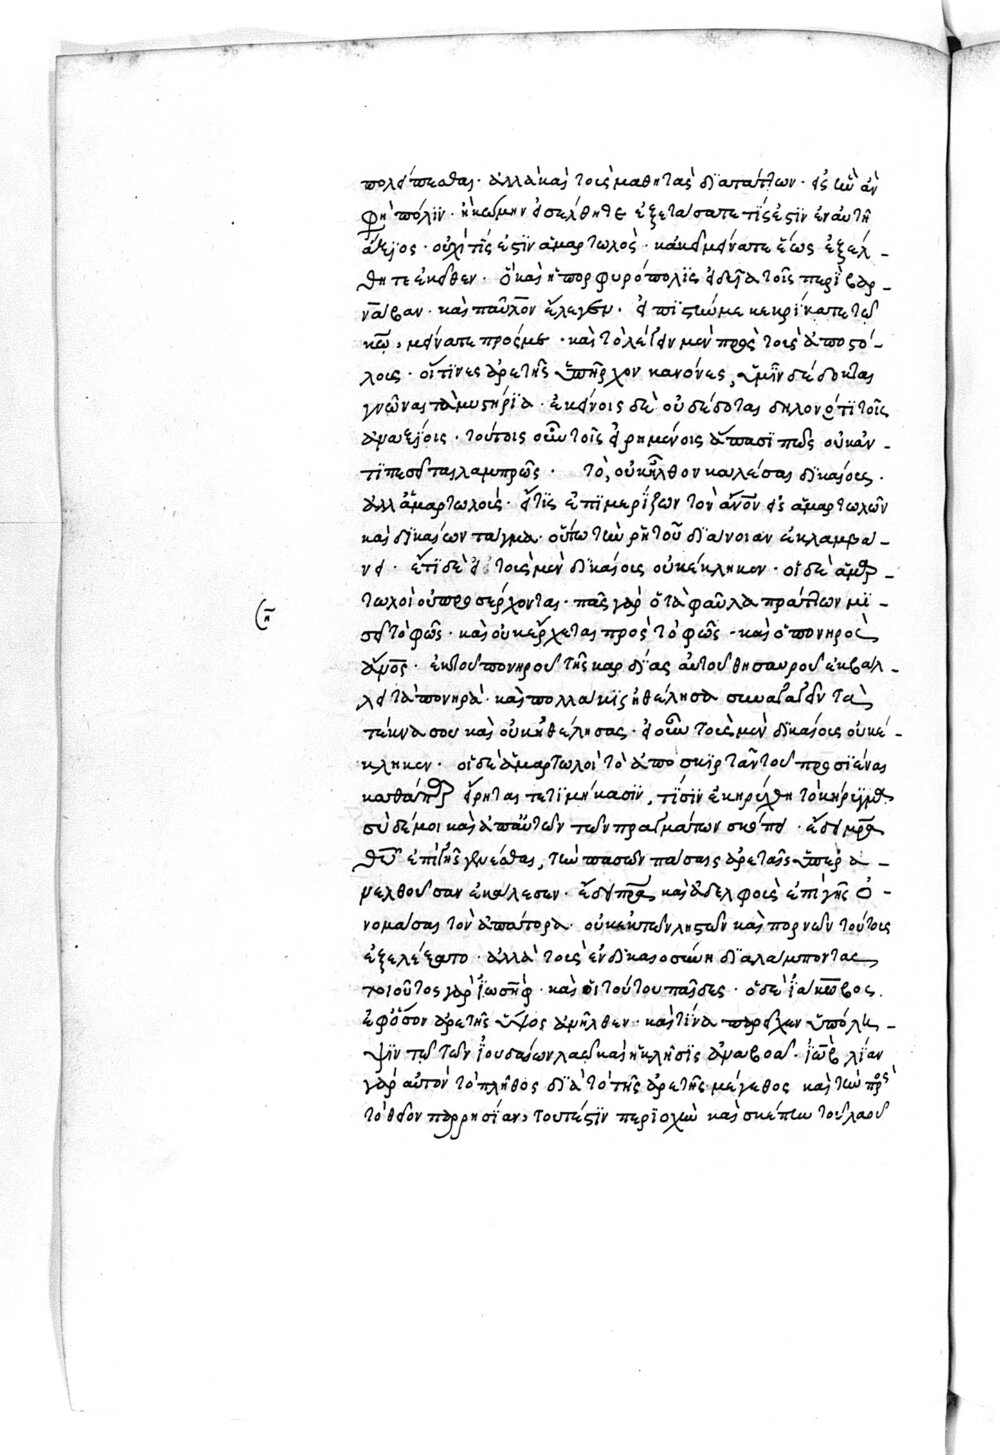 πολείπεσθαι· ἀλλὰ καὶ τοῖς μαθηταῖς διαπάττων· εἰς ἣν ἂν
φησὶ πόλιν· ἢ κώμην εἰσέλθητε ἐξετάσατε τίς ἐστὶν ἐν αὐτῆ
ἄξιος· οὐχὶ τίς ἐστὶν ἁμαρτωλὸς· κἀκεῖ μείνατε ἕως ἐξέλ-
θητε ἐκεῖθεν· ὃ καὶ ἡ πορφυρόπολις ἰδεῖσα τοῖς περὶ βαρ-
νάβαν· καὶ παῦλον ἔλεγεν· εἰ πιστώ με κεκρίκατε τῶ
κω, μείνατε πρός με· καὶ τὸ λέγειν μὲν πρὸς τοὺς ἀποστό-
λους· οἵτινες ἀρετῆς ὑπῆρχον κανόνες, ὑμῖν δέδοται
γνῶναι τὰ μυστήρια· ἐκείνοις δὲ οὐ δέδοται δηλονότι τοῖς
ἀναξίοις· τούτοις οὖν τοῖς εἰρημένοις ἅπασί πως οὐκ ἀν-
τιπεσεῖται λαμπρῶς· τὸ, οὐκ ἦλθον καλέσαι δικαίους·
ἀλλ ἁμαρτωλοὺς· εἴτις ἐπιμερίζων τὸν ανον εἰς ἁμαρτωλῶν
καὶ δικαίων τάγμα· οὕτω τὴν ῥητοῦ διάνοιαν ἐκλαμβά-
νει· ἔτι δὲ εἰ τοὺς μὲν δικαίους οὐ κέκληκεν· οἱ δὲ ἁμαρ-
τωλοὶ οὐ προσέρχονται· πᾶς γὰρ ὁ τὰ φαῦλα πράττων μι-
σεῖ τὸ φῶς· καὶ οὐκ ἔρχεται πρὸς τὸ φῶς· καὶ ὁ πονηρὸς
ανος· ἐκ τοῦ πονηροῦ τῆς καρδίας αὐτοῦ θησαυροῦ ἐκβάλ-
λει τὰ πονηρὰ· καὶ πολλάκις ἠθέλησα συναγαγεῖν τὰ
τέκνα σου καὶ οὐκ ἠθέλησας· εἰ οὖν τοὺς μὲν δικαίους οὐ κέ-
κληκεν· οἱ δὲ ἁμαρτωλοὶ τὸ ἀποσκιρτᾶν τοῦ προσιέναι
καθάπερ εἴρηται τετιμήκασιν, τίσιν ἐκηρύχθη τὸ κήρυγμα
σὺ δέ μοι καὶ ἀπ αὐτῶν τῶν πραγμάτων σκόπει· ἔδει μρα
θυ ἐπὶ γῆς γενέσθαι, τὴν πασῶν πάσαις ἀρεταῖς ὑπερα-
νελθοῦσαν ἐκάλεσεν· ἔδει πρα καὶ ἀδελφοὺς ἐπὶ γῆς ὀ-
νομάσαι τὸν ἀπάτορα· οὐκ ἐκ τῶν ληστῶν καὶ πορνῶν τούτους
ἐξελέξατο· ἀλλὰ τοὺς ἐν δικαιοσύνη διαλάμποντας
τοιοῦτος γὰρ ἰωσὴφ· καὶ οἱ τούτου παῖδες· ὁ δὲ ἰάκωβος
ἐφ ὅσον ἀρετῆς ὕψος ἀνῆλθεν· καὶ τίνα παρεῖχεν ὑπόλη-
ψιν τῶ τῶν ἰουδαίων λαῶ καὶ ἡ κλῆσις ἀναβοᾶ· ἰὼβ λίαν
γὰρ αὐτὸν τὸ πλῆθος διὰ τὸ τῆς ἀρετῆς μέγεθος καὶ τὴν πρὸς
τὸ θεῖον παρρησίαν, τουτέστιν περιοχὴν καὶ σκέπην τοῦ λαοῦ